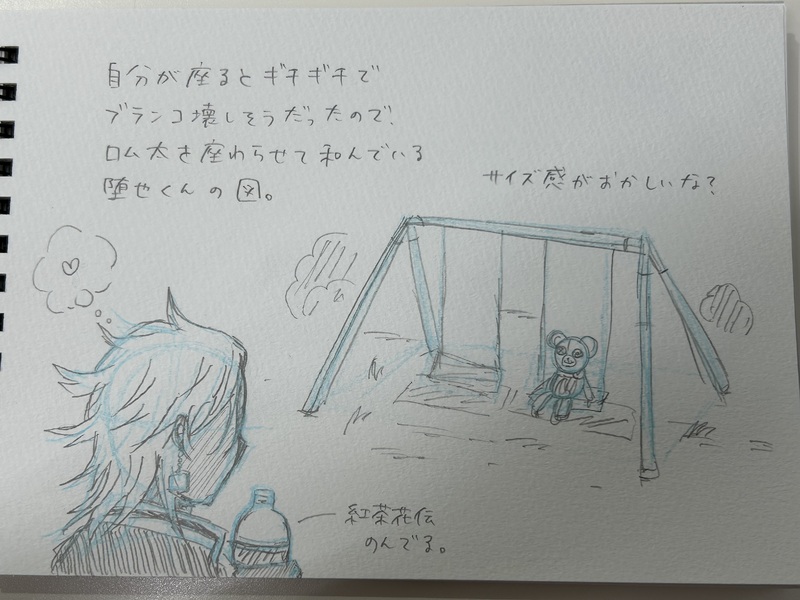 自分が座るとギチギチで
ブランコ壊しそうだったので、
ロム太を座わらせて和んでいる
堕也くんの図。
サイズ感がおかしいな?
紅茶花伝
のんでる。